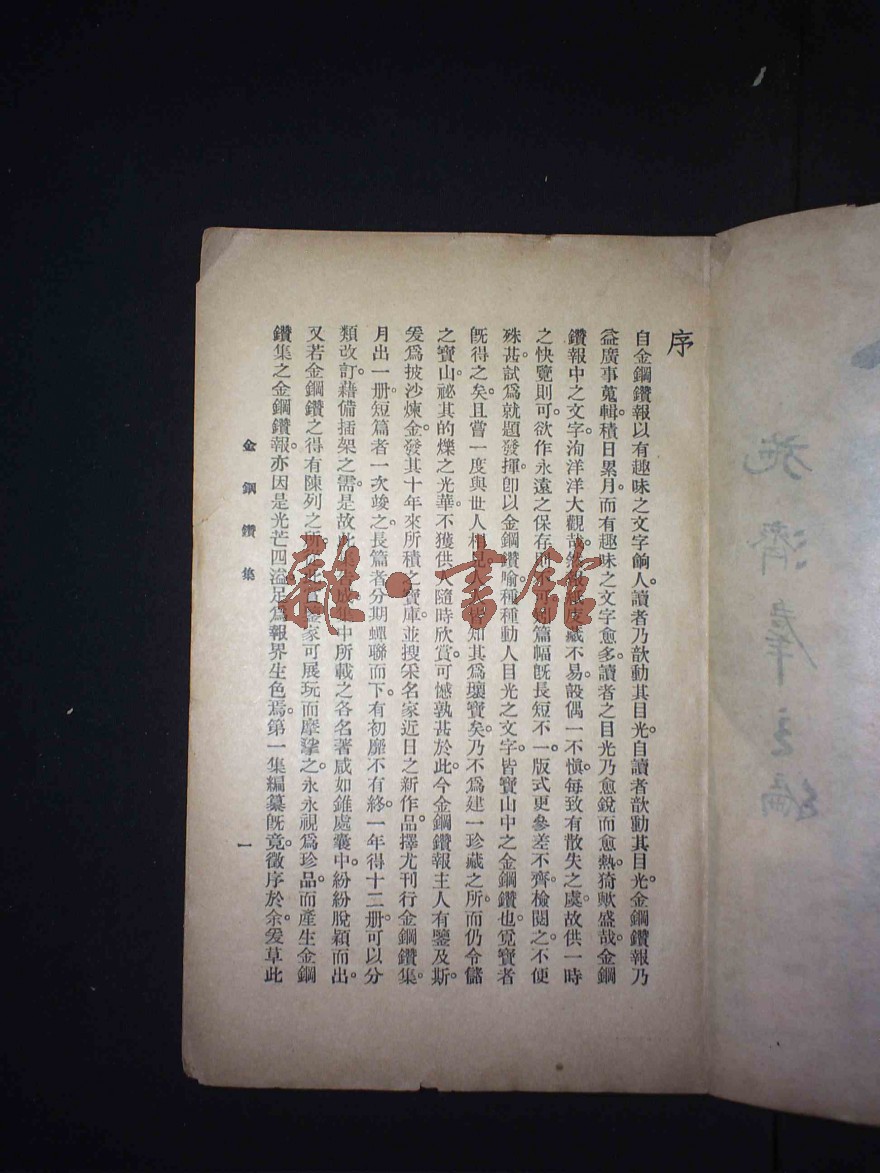 序
自金鋼鑽報以有趣味之文字餉人。讀者乃歆動其目光。自讀者歆動其目光。金鋼鑽報乃
益廣事蒐輯。積日累月。而有趣味之文字愈多。讀者之目光乃愈銳而愈熱。猗歟盛哉。金鋼
鑽報中之文字。洵洋洋大觀哉。然報紙庋藏不易。設偶一不愼。每致有散失之虞。故供一時
之快覽則可。欲作永遠之保存則不可。篇幅旣長短不一。版式更參差不齊。檢閱之。不便
殊甚。試爲就題發揮。卽以金鋼鑽喻。種種動人目光之文字。皆寶山中之金鋼鑽也。覓寶者
旣得之矣。且嘗一度與世人相見。人皆知其爲瓌寶矣。乃不爲建一珍藏之所。而仍令儲
之寶山。祕其的爍之光華。不獲供人隨時欣賞。可憾孰甚於此。今金鋼鑽報主人有鑒及斯。
爰爲披沙煉金。發其十年來所積之寶庫。並搜采名家近日之新作品。擇尤刊行金鋼鑽集。
月出一册。短篇者一次竣之。長篇者分期蟬聯而下。有初靡不有終。一年得十二册。可以分
類改訂。藉備插架之需。是故此集成。集中所載之各名著。咸如錐處囊中。紛紛脫穎而出。
又若金鋼鑽之得有陳列之所。家可展玩而摩挲之。永永視爲珍品。而產生金鋼
鑽集之金鋼鑽報。亦因是光芒四溢。足爲報界生色焉。第一集編纂旣竟。徵序於余。爰草此
金鋼鑽集
一
雜·書館
施濟羣主編